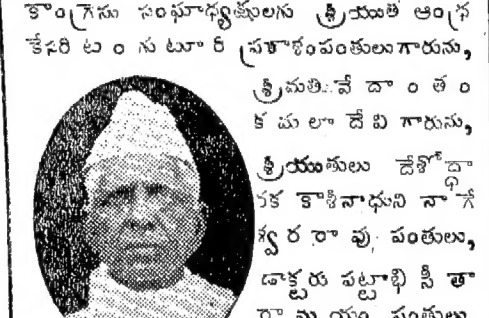 కాంగ్రెసు సంఘాధ్యక్షులగు శ్రీయుత ఆంధ్ర
కేసరి టంగుటూరి ప్రకాశంపంతులుగారును,
శ్రీమతి వేదాంతం
కమలాదేవి గారును,
శ్రీయుతులు దేశోద్ధా
రక కాశీనాథుని నాగే
శ్వరరావు పంతులు,
డాక్టరు పట్టాభి సీతా
రామయ్య పంతులు